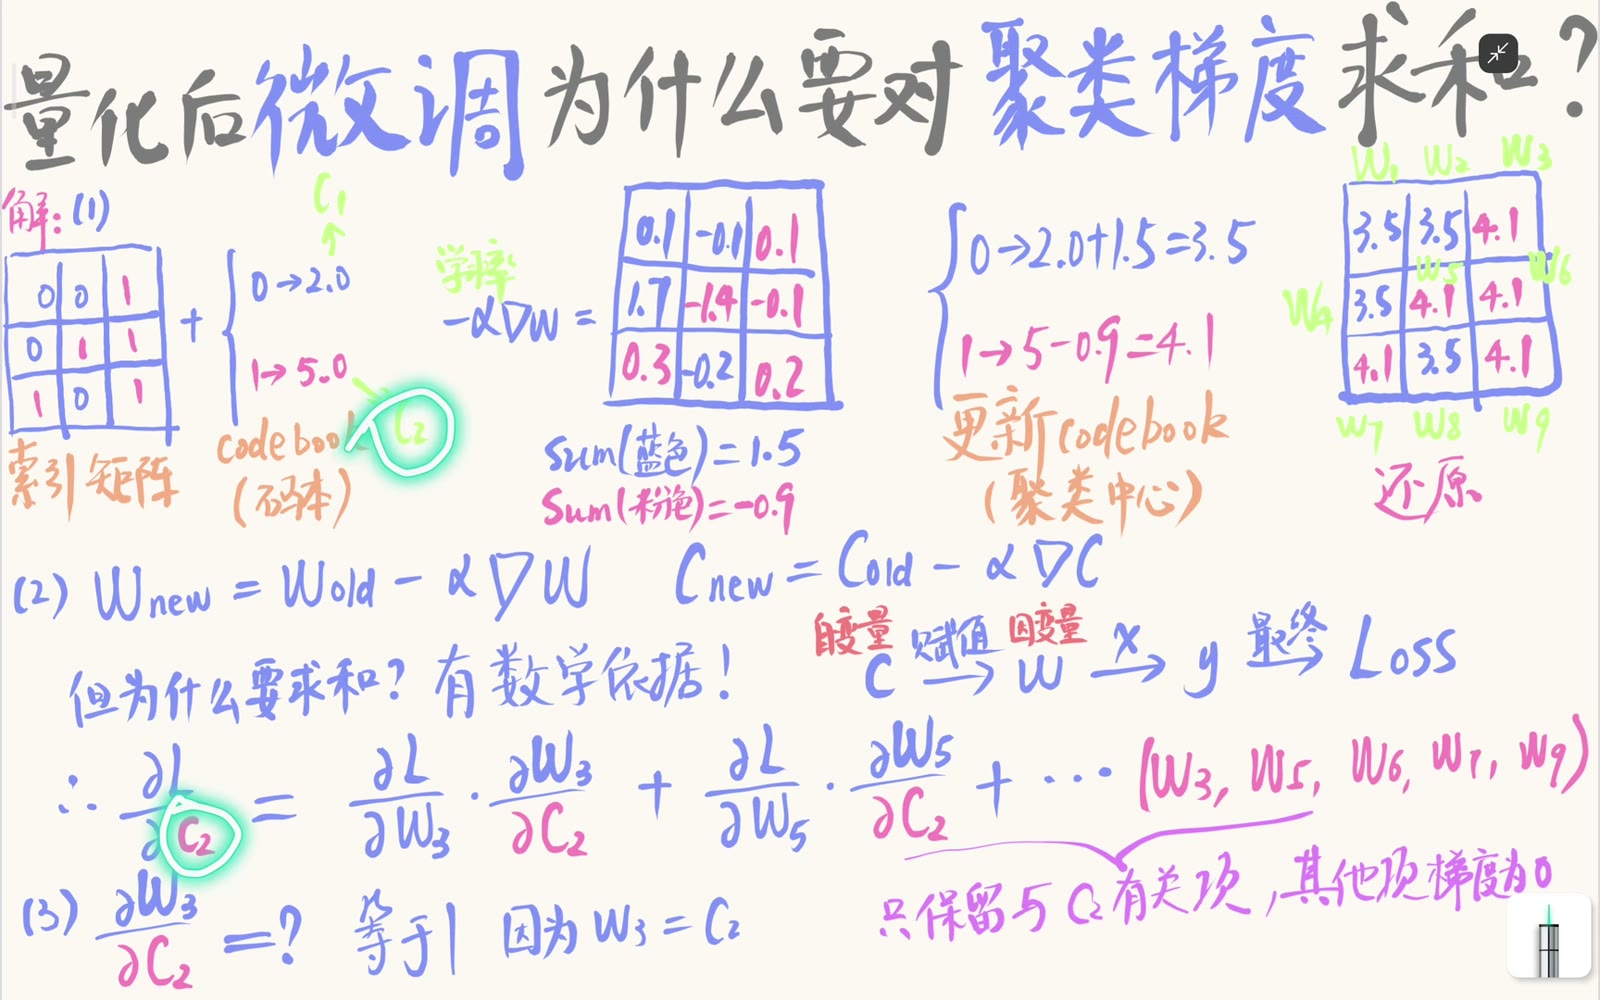 量化后微调为什么要对聚类梯度求和?
解:(1)
0 0 1
0 1 1
1 0 1
索引矩阵
+
C1
0→2.0
1→5.0
C2
codebook
(码本)
学习率
-α∇W =
0.1 -0.1 0.1
1.7 -1.4 -0.1
0.3 -0.2 0.2
sum(蓝色)=1.5
Sum(粉色)=-0.9
0→2.0+1.5=3.5
1→5-0.9=4.1
更新codebook
(聚类中心)
W1 W2 W3
3.5 3.5 4.1
W4 W5 W6
3.5 4.1 4.1
4.1 3.5 4.1
W7 W8 W9
还原
(2) Wnew = Wold - α∇W Cnew = Cold - α∇C
但为什么要求和? 有数学依据!
自变量 赋值 因变量 x 最终
C → W → y → Loss
∴ ∂L/∂C2 = ∂L/∂W3 · ∂W3/∂C2 + ∂L/∂W5 · ∂W5/∂C2 + ··· (W3, W5, W6, W7, W9)
只保留与C2有关项,其他项梯度为0
(3) ∂W3/∂C2 =? 等于1 因为 W3 = C2